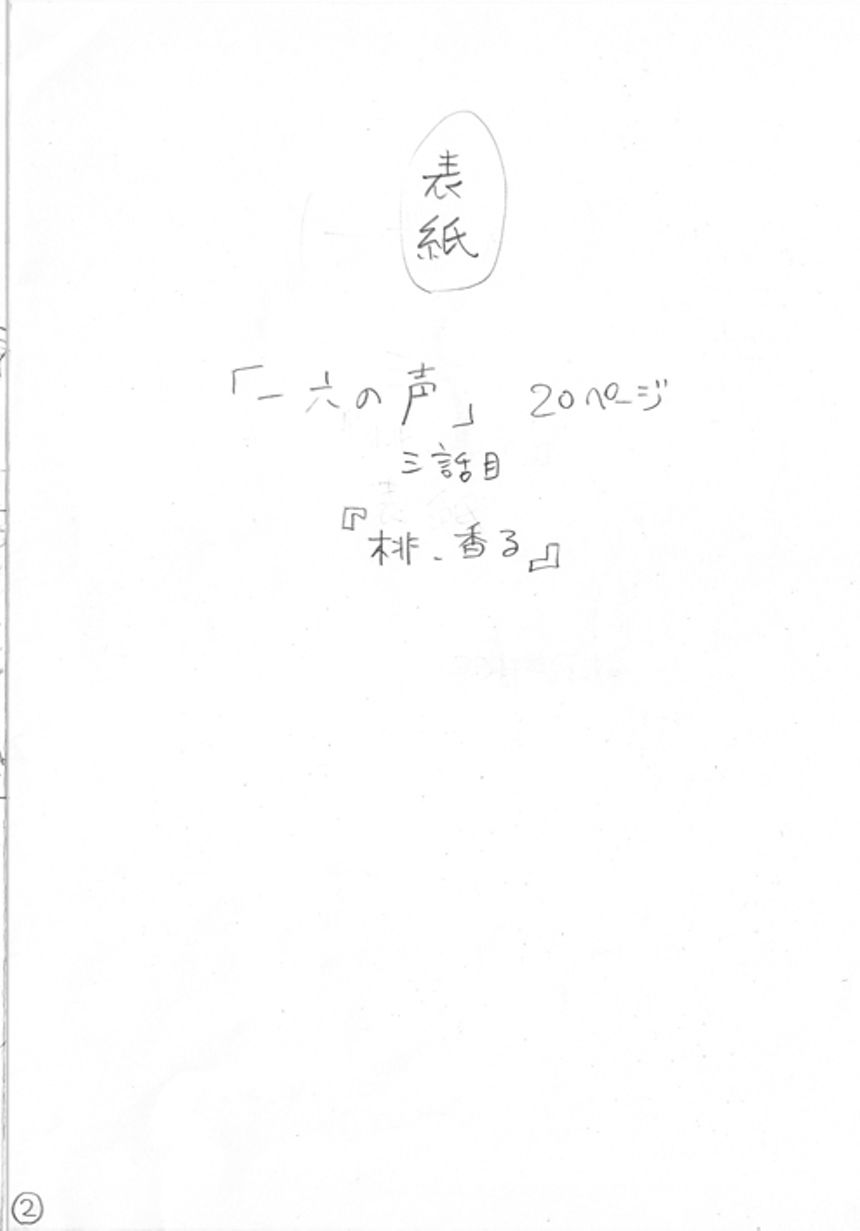 表紙
「一六の声」 20ページ
三話目
『桃、香る』
②